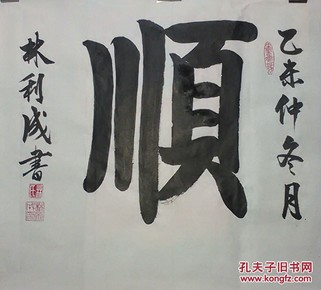 乙未仲冬月
順
林利成書
孔夫子旧书网